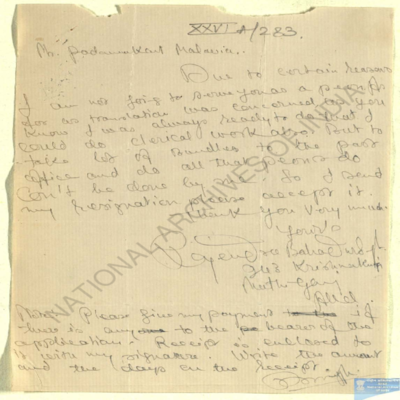 XXVI A/283.
Mr. Padmakant Malavia,
Due to certain reasons
I am not going to serve you as a
for as translation was concerned you
know I was always ready to do that I
could do clerical work also but to
take lot of Bundles to the post
office and do all that peons do
can't be done by me. So I send
my Resignation please accept it.
Thank you very much.
Yours
Bahadur
Krishnakunj
Mutthi Ganj
Note: Please give my payment if
there is any to the bearer of the
application. Receipt is enclosed to
it with my signature. Write the amount
and the days on the receipt.
NATIONAL ARCHIVES OF INDIA